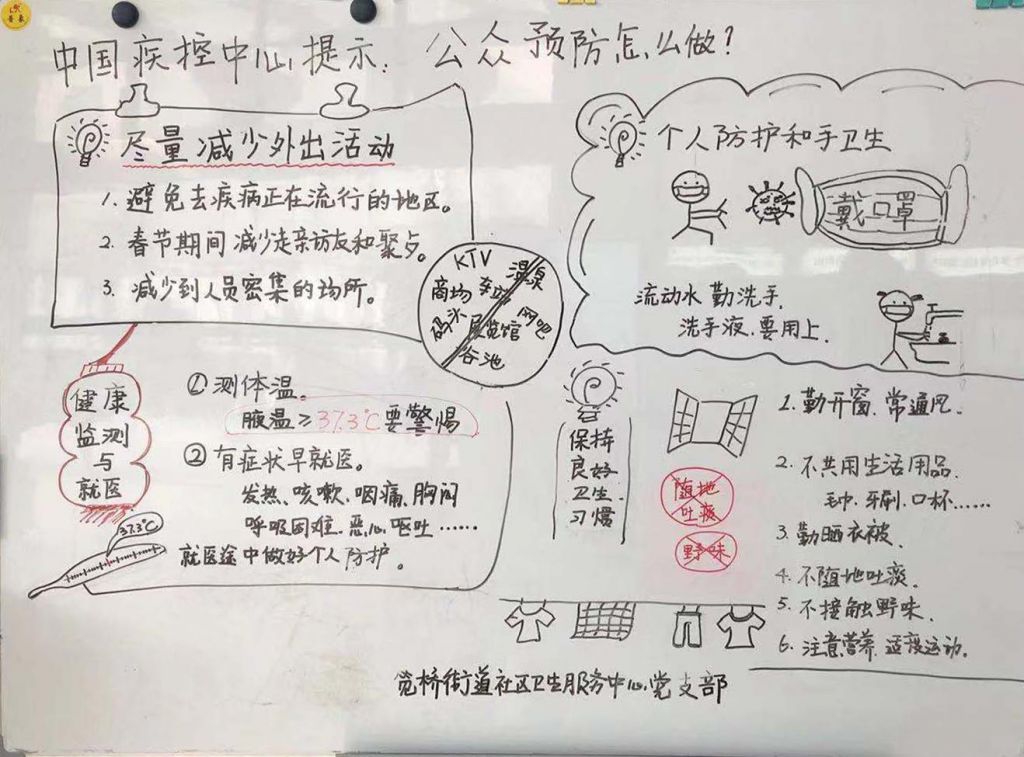 中国疾控中心提示: 公众预防怎么做?
尽量减少外出活动
1. 避免去疾病正在流行的地区。
2. 春节期间减少走亲访友和聚歺。
3. 减少到人员密集的场所。
KTV 温泉
商场 车站
码头 网吧
展览馆
浴池
个人防护和手卫生
戴口罩
流动水 勤洗手.
洗手液.要用上.
健康
监测
与
就医
37.3℃
① 测体温。
腋温≥37.3℃要警惕
② 有症状早就医。
发热、咳嗽、咽痛、胸闷
呼吸困难、恶心、呕吐……
就医途中做好个人防护。
保持
良好
卫生
习惯
随地
吐痰
野味
1. 勤开窗.常通风.
2. 不共用生活用品.
毛巾.牙刷.口杯……
3. 勤晒衣被.
4. 不随地吐痰.
5. 不接触野味.
6. 注意营养.适度运动.
笕桥街道社区卫生服务中心党支部